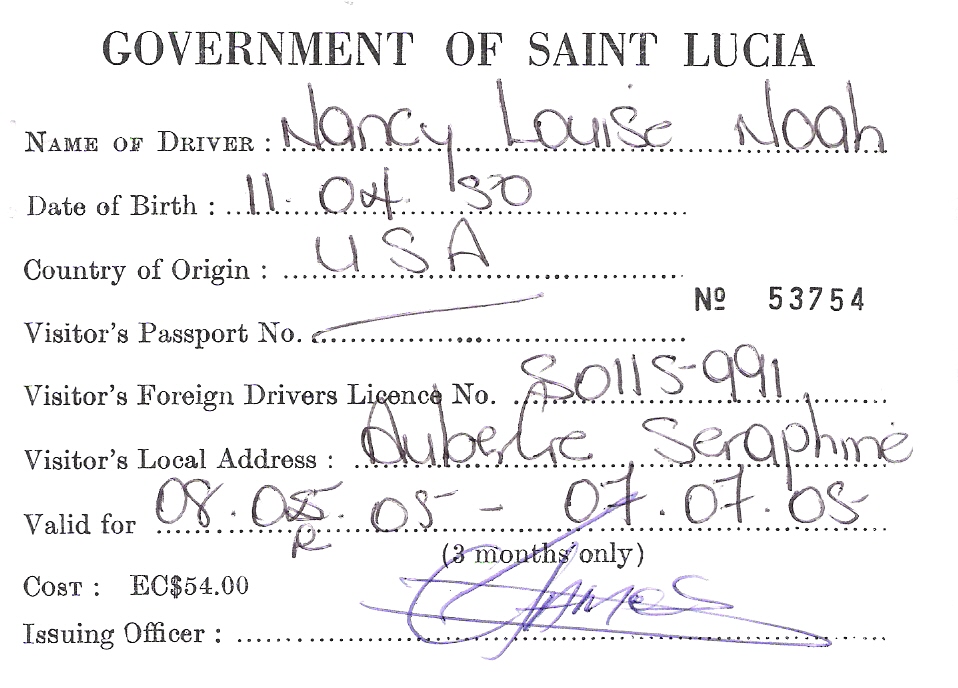 GOVERNMENT OF SAINT LUCIA
NAME OF DRIVER : Nancy Louise Noah
Date of Birth : 11. 04. '50
Country of Origin : USA
Nº 53754
Visitor's Passport No.
Visitor's Foreign Drivers Licence No. S0115-991
Visitor's Local Address : Auberge Seraphine
Valid for 08. 05 - 07.07.05
(3 months only)
COST : EC$54.00
Issuing Officer : James